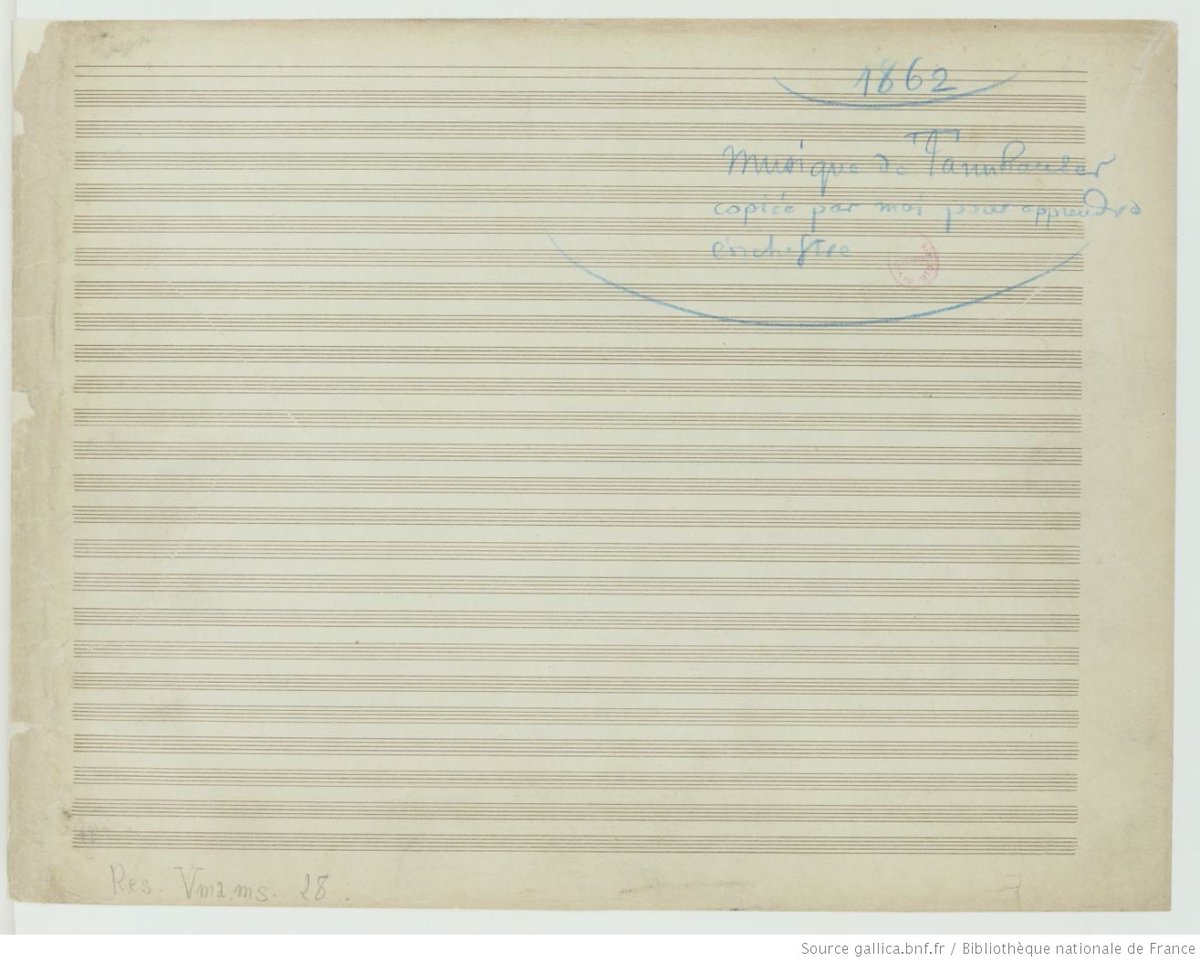 1862
Musique de Tannhauser
copiée par moi pour apprendre
l'orchestre
Rés. Vma. ms. 28.
Source gallica.bnf.fr / Bibliothèque nationale de France